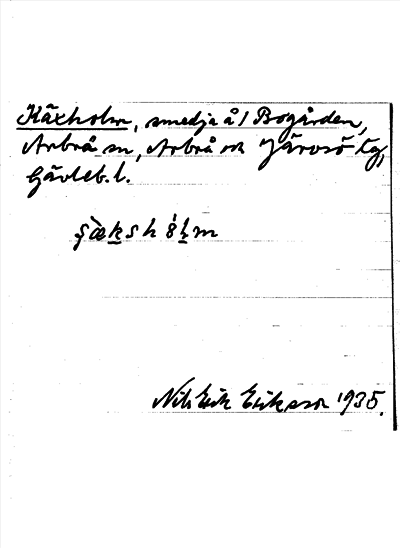 Käxholm, smedja å/ Bogården,
Arbrå sn, Arbrå och Järvsö tg,
Gävleb. l.
Nils Erik Eriksson 1935.